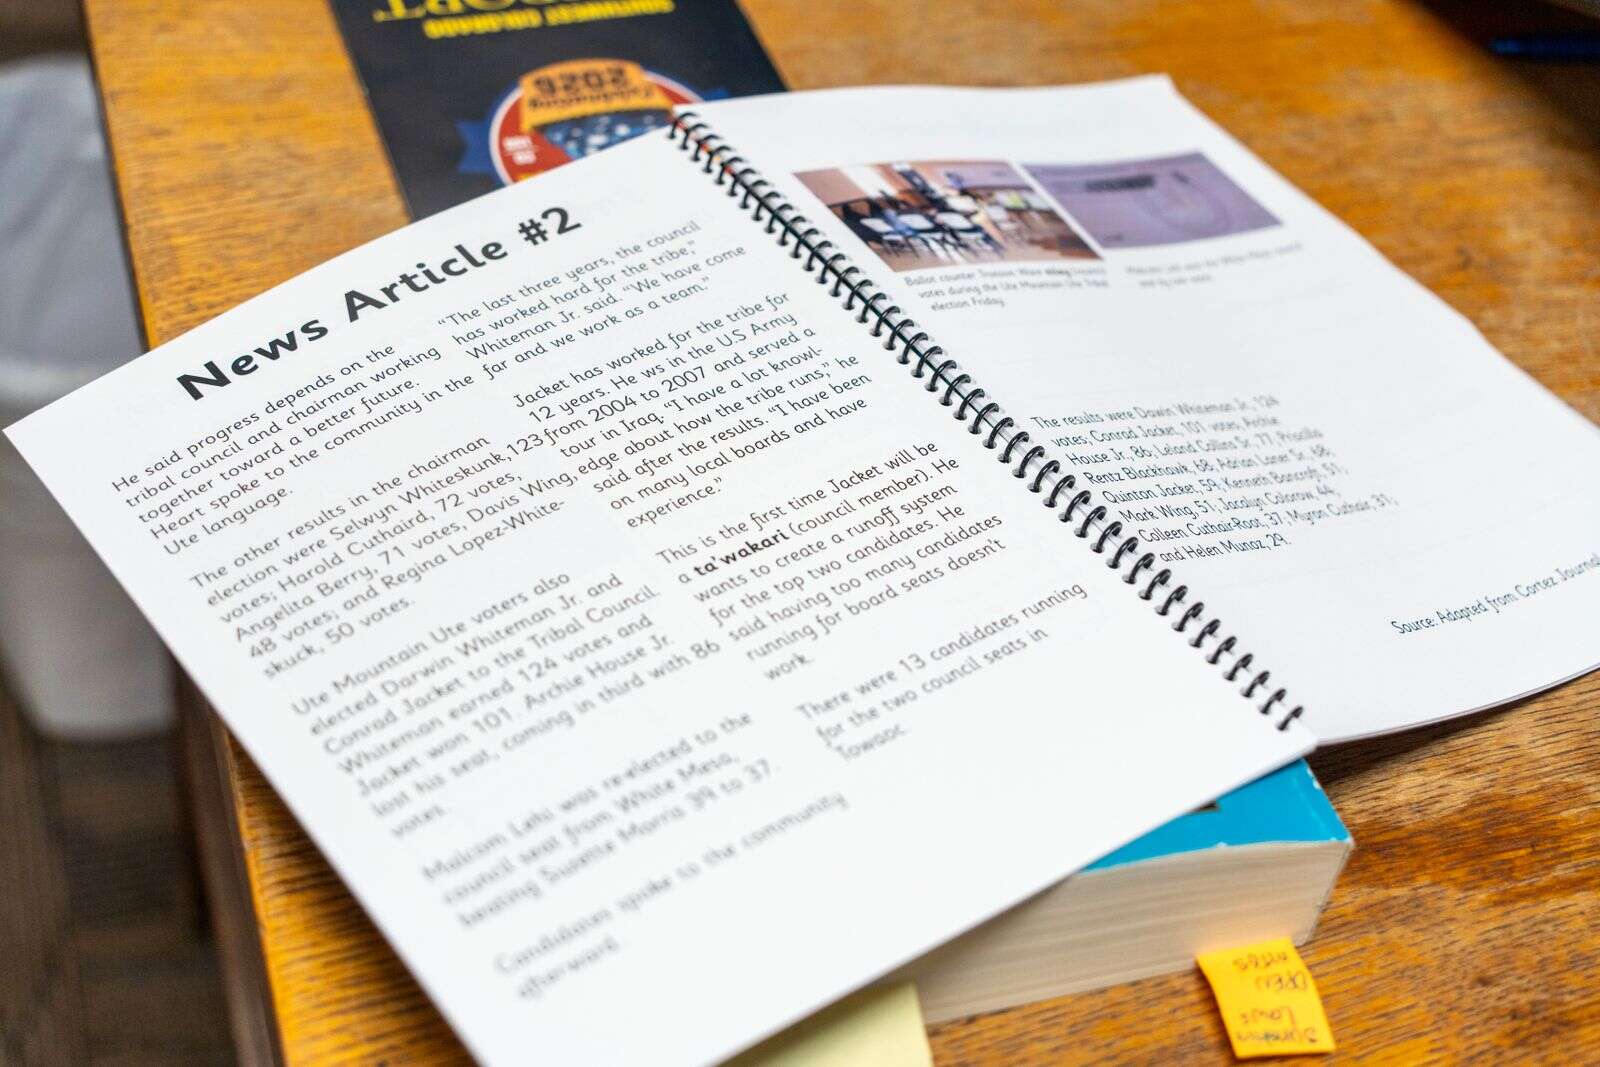 SOUTHWEST COLORADO
2026
News Article #2
He said progress depends on the
tribal council and chairman working
together toward a better future.
Heart spoke to the community in the
Ute language.
The other results in the chairman
election were Selwyn Whiteskunk,123
votes; Harold Cuthaird, 72 votes,
Angelita Berry, 71 votes, Davis Wing,
48 votes; and Regina Lopez-White-
skuck, 50 votes.
Ute Mountain Ute voters also
elected Darwin Whiteman Jr. and
Conrad Jacket to the Tribal Council.
Whiteman earned 124 votes and
Jacket won 101. Archie House Jr.
lost his seat, coming in third with 86
votes.
Malcom Lehi was re-elected to the
council seat from White Mesa,
beating Suzette Morris 39 to 37.
Candidates spoke to the community
afterward.
“The last three years, the council
has worked hard for the tribe,”
Whiteman Jr. said. “We have come
far and we work as a team.”
Jacket has worked for the tribe for
12 years. He ws in the U.S Army
from 2004 to 2007 and served a
tour in Iraq. “I have a lot knowl-
edge about how the tribe runs,” he
said after the results. “I have been
on many local boards and have
experience.”
This is the first time Jacket will be
a ta’wakari (council member). He
wants to create a runoff system
for the top two candidates. He
said having too many candidates
running for board seats doesn’t
work.
There were 13 candidates running
for the two council seats in
Towaoc.
Ballot counter
votes during the Ute Mountain Ute Tribal
election Friday.
The results were Dawin Whiteman Jr, 124
votes; Conrad Jacket, 101 votes, Archie
House Jr, 86; Leland Collins Sr. 77, Priscilla
Rentz Blackhawk, 68, Adrian Laner Sr. 68,
Quinton Jacket, 59, Kenneth Bancroft, 51,
Mark Wing, 51, Jacalyn Colorow, 44,
Colleen Cuthair-Root, 37, Myron Cuthair, 31,
and Helen Munoz, 29.
Source: Adapted from Cortez Journal
OPEN